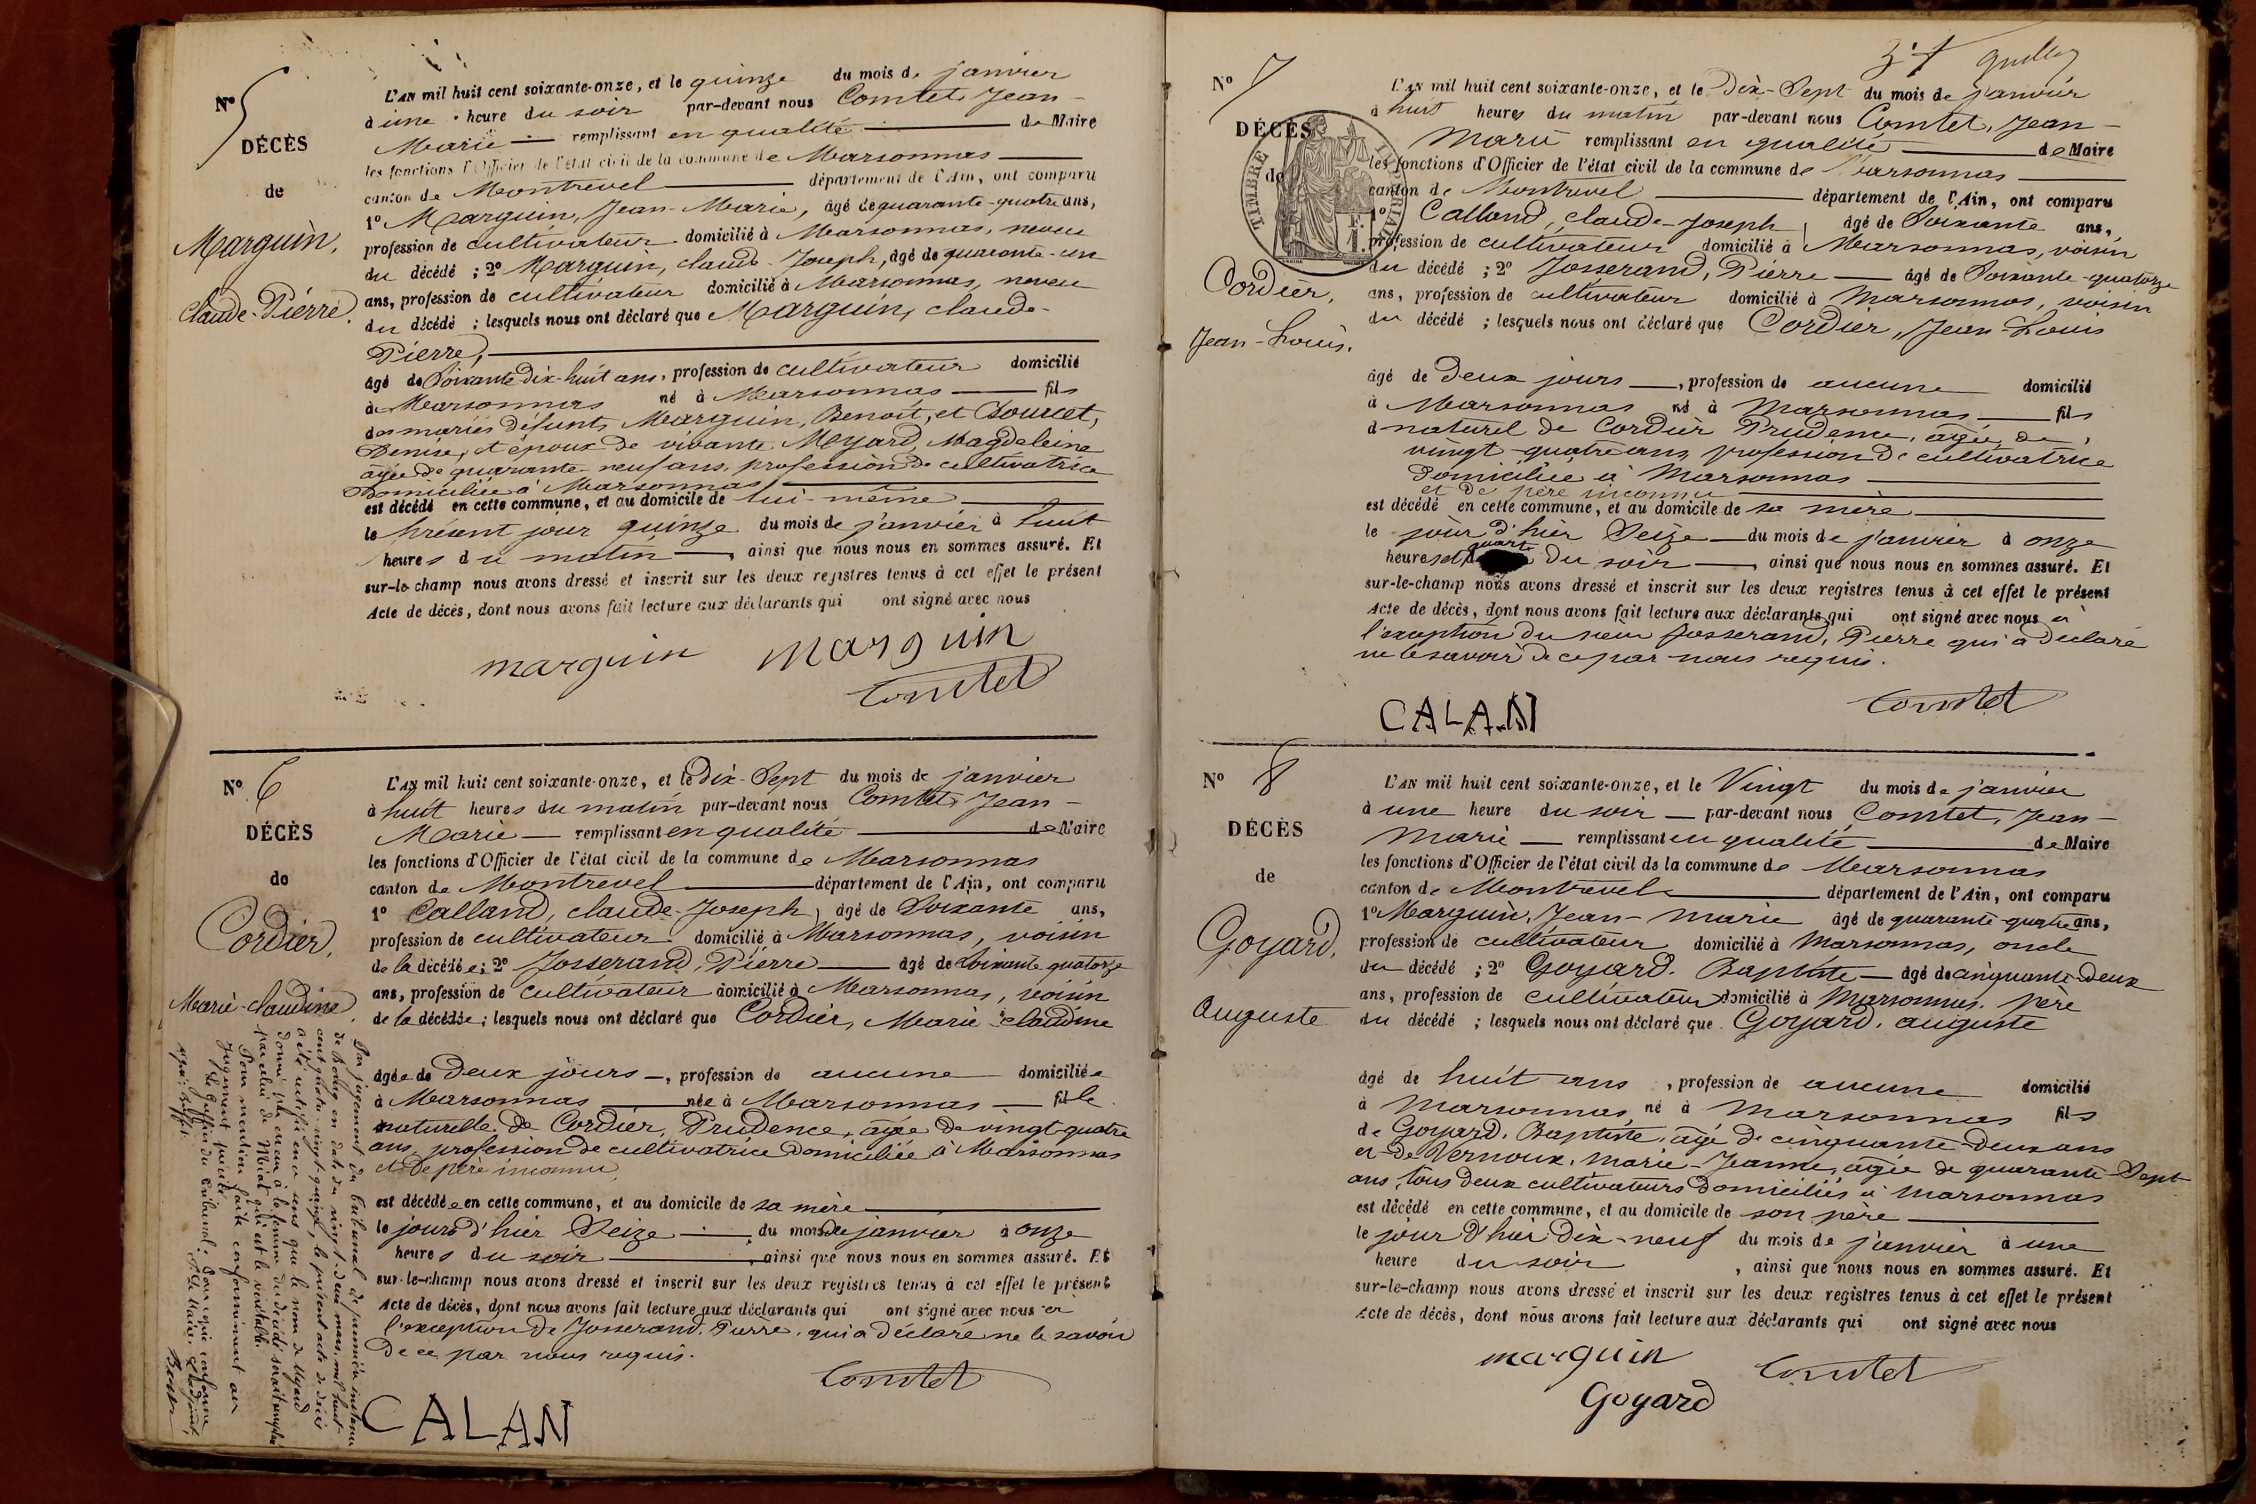 Nº 5
DÉCÈS
de
Marguin,
Claude-Pierre.
L'AN mil huit cent soixante-onze, et le quinze du mois de janvier
à une heure du soir par-devant nous Comtet, Jean-
Marie remplissant en qualité de Maire
les fonctions d'Officier de l'état civil de la commune de Marsonnas
canton de Montrevel département de l'Ain, ont comparu
1º Marguin, Jean-Marie, âgé de quarante-quatre ans,
profession de cultivateur domicilié à Marsonnas, neveu
du décédé ; 2º Marguin, claude-Joseph, âgé de quarante-un
ans, profession de cultivateur domicilié à Marsonnas, neveu
du décédé ; lesquels nous ont déclaré que Marguin, claude-
Pierre,
âgé de Soixante-dix-huit ans, profession de cultivateur domicilié
à Marsonnas né à Marsonnas fils
des mariés défunts Marguin, Benoit, et Bourcet,
Denise, et époux de vivante Meyard, Magdeleine
âgée de quarante-neuf ans, profession de cultivatrice
Domiciliée à Marsonnas
est décédé en cette commune, et au domicile de lui-même
le présent jour quinze du mois de janvier à huit
heures du matin, ainsi que nous nous en sommes assuré. Et
sur-le-champ nous avons dressé et inscrit sur les deux registres tenus à cet effet le présent
Acte de décès, dont nous avons fait lecture aux déclarants qui ont signé avec nous
marguin marguin
Comtet
Nº 6
DÉCÈS
de
Cordier,
Marie-claudine.
L'AN mil huit cent soixante-onze, et le Dix-Sept du mois de janvier
à huit heures du matin par-devant nous Comtet, Jean-
Marie remplissant en qualité de Maire
les fonctions d'Officier de l'état civil de la commune de Marsonnas
canton de Montrevel département de l'Ain, ont comparu
1º Calland, claude-Joseph, âgé de Soixante ans,
profession de cultivateur domicilié à Marsonnas, voisin
de la décédée ; 2º Josserand, Pierre âgé de Soixante quatorze
ans, profession de cultivateur domicilié à Marsonnas, voisin
de la décédée ; lesquels nous ont déclaré que Cordier, Marie-claudine
âgée de Deux jours, profession de aucune domiciliée
à Marsonnas née à Marsonnas fille
naturelle de Cordier, Prudence, âgée de vingt-quatre
ans, profession de cultivatrice domiciliée à Marsonnas
et de père inconnu
est décédée en cette commune, et au domicile de sa mère
le jour d'hier Seize du mois de janvier à onze
heures du soir, ainsi que nous nous en sommes assuré. Et
sur-le-champ nous avons dressé et inscrit sur les deux registres tenus à cet effet le présent
Acte de décès, dont nous avons fait lecture aux déclarants qui ont signé avec nous à
l'exception de Josserand, Pierre, qui a déclaré ne le savoir
De ce par nous requis.
Comtet
CALAN
Par jugement du tribunal de première instance
de Bourg en date du vingt-deux mars, mil huit
cent quatre-vingt-quinze, le présent acte de décès
a été rectifié en ce sens que le nom de Meyard
donné à la femme du décédé serait remplacé
par celui de qui est le véritable.
Pour mention faite conformément au
Jugement précité
Le Greffier du tribunal. Pour copie conforme
Nº 7
DÉCÈS
de
TIMBRE IMPÉRIAL
1 F
Cordier,
Jean-Louis.
L'AN mil huit cent soixante-onze, et le Dix-Sept du mois de janvier
à huit heures du matin par-devant nous Comtet, Jean-
Marie remplissant en qualité de Maire
les fonctions d'Officier de l'état civil de la commune de Marsonnas
canton de Montrevel département de l'Ain, ont comparu
1º Calland, claude-Joseph, âgé de Soixante ans,
profession de cultivateur domicilié à Marsonnas, voisin
du décédé ; 2º Josserand, Pierre âgé de Soixante-quatorze
ans, profession de cultivateur domicilié à Marsonnas, voisin
du décédé ; lesquels nous ont déclaré que Cordier, Jean-Louis
âgé de Deux jours, profession de aucune domicilié
à Marsonnas né à Marsonnas fils
naturel de Cordier Prudence, âgée de
vingt-quatre ans, profession de cultivatrice
Domiciliée à Marsonnas
et de père inconnu
est décédé en cette commune, et au domicile de sa mère
le jour d'hier Seize du mois de janvier à onze
heures et quart du soir, ainsi que nous nous en sommes assuré. Et
sur-le-champ nous avons dressé et inscrit sur les deux registres tenus à cet effet le présent
Acte de décès, dont nous avons fait lecture aux déclarants qui ont signé avec nous à
l'exception du sieur Josserand, Pierre qui a déclaré
ne le savoir de ce par nous requis.
CALAN Comtet
Nº 8
DÉCÈS
de
Goyard,
Auguste
L'AN mil huit cent soixante-onze, et le Vingt du mois de janvier
à une heure du soir par-devant nous Comtet, Jean-
Marie remplissant en qualité de Maire
les fonctions d'Officier de l'état civil de la commune de Marsonnas
canton de Montrevel département de l'Ain, ont comparu
1º Marguin, Jean-Marie âgé de quarante-quatre ans,
profession de cultivateur domicilié à Marsonnas, oncle
du décédé ; 2º Goyard, Baptiste âgé de cinquante-Deux
ans, profession de cultivateur domicilié à Marsonnas, père
du décédé ; lesquels nous ont déclaré que Goyard, auguste
âgé de huit ans, profession de aucune domicilié
à Marsonnas né à Marsonnas fils
de Goyard, Baptiste, âgé de cinquante-Deux ans
et de Vernoux, Marie-Jeanne, âgée de quarante-Sept
ans, tous deux cultivateurs domiciliés à Marsonnas
est décédé en cette commune, et au domicile de son père
le jour d'hier Dix-neuf du mois de janvier à une
heure du soir, ainsi que nous nous en sommes assuré. Et
sur-le-champ nous avons dressé et inscrit sur les deux registres tenus à cet effet le présent
Acte de décès, dont nous avons fait lecture aux déclarants qui ont signé avec nous
marguin Comtet
Goyard